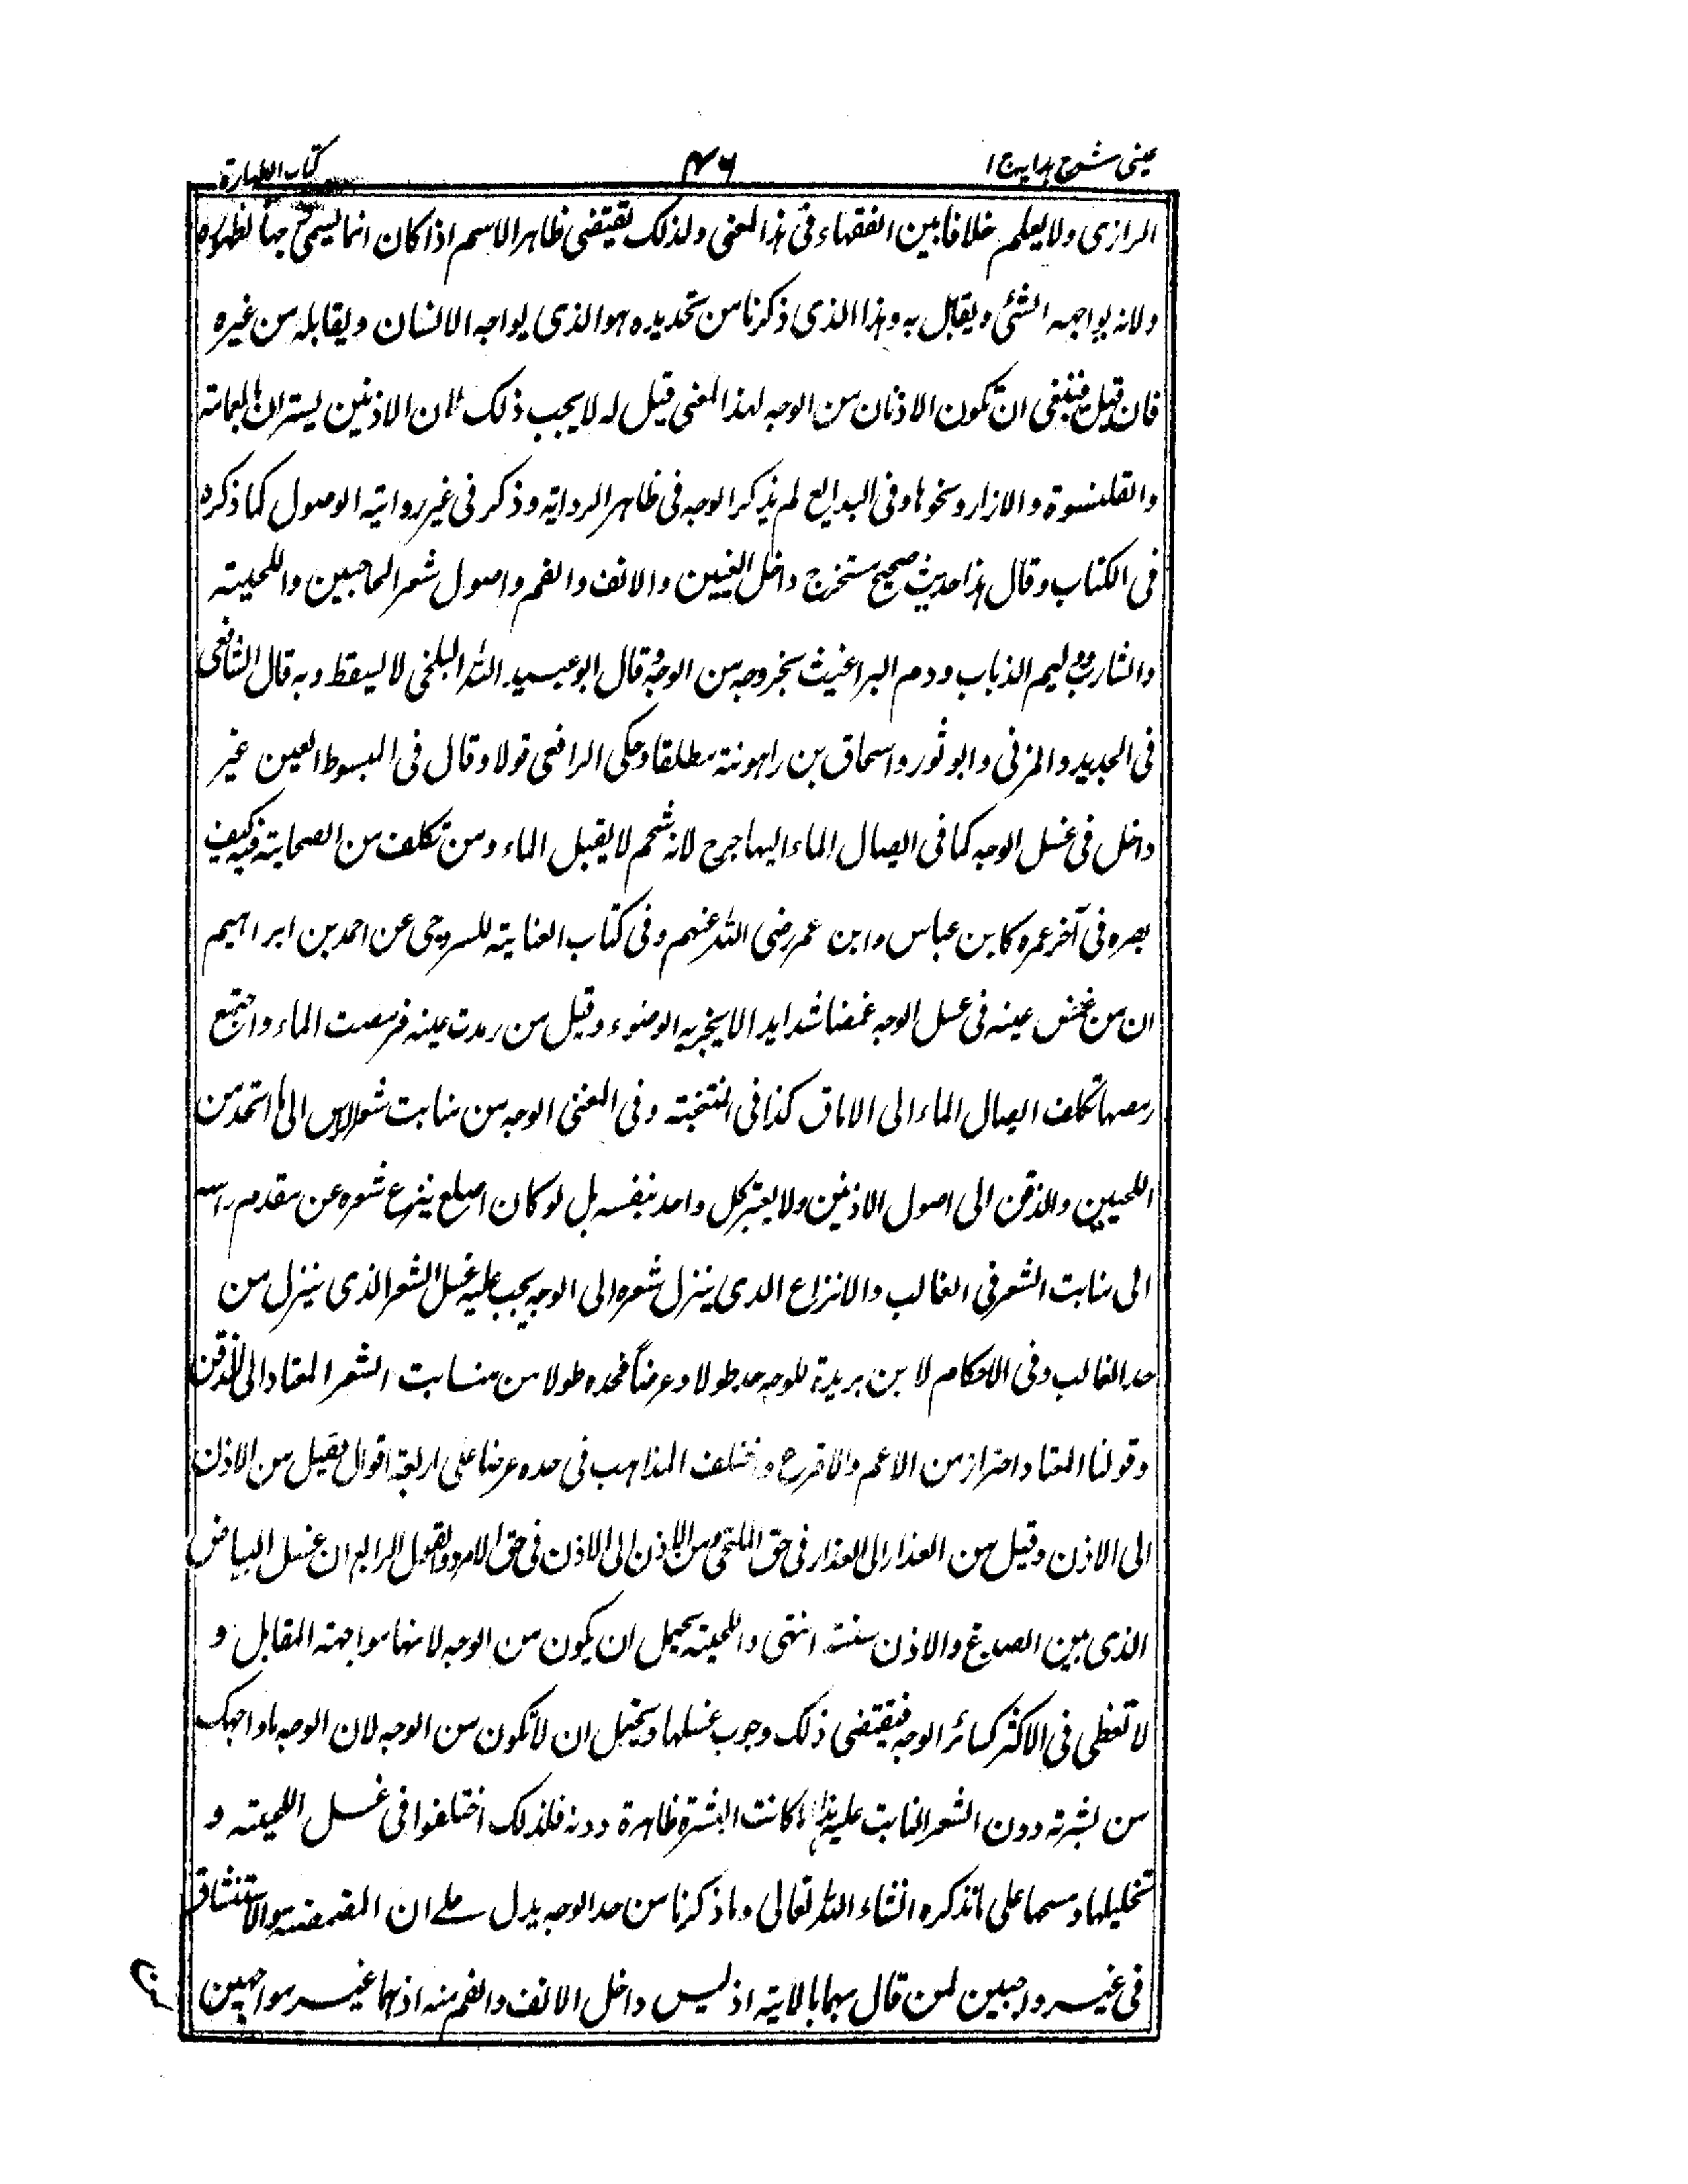 عینی شرح ہدایہ ج ۱
۴۶
کتاب الطہارۃ
الرازی ولا یعلم خلافا بین الفقہاء فی ہذا المعنی ولذلک یقتضی ظاہر الاسم اذا کان انما یسمی وجہا لظہورہ
ولانہ یواجہہ الشئی ویقابل بہ وہذا الذی ذکرنا من تحدیدہ ہو الذی یواجہ الانسان ویقابلہ من غیرہ
فان قیل فینبغی ان تکون الاذنان من الوجہ لہذا المعنی قیل لہ لا یجب ذلک لان الاذنین یستران بالعمامۃ
والقلنسوۃ والازار ونحوہا وفی البدایع لم یذکر الوجہ فی ظاہر الروایۃ وذکر فی غیر روایۃ الوصول کما ذکرہ
فی الکتاب وقال ہذا حدیث صحیح مستخرج داخل العینین والانف والفم واصول شعر الحاجبین واللحیۃ
والشارب وونیم الذباب ودم البراغیث بخروجہ من الوجہ وقال ابو عبید اللہ البلخی لا یسقط وبہ قال الشافعی
فی الجدید والمزنی وابو ثور واسحاق بن راہویۃ مطلقا وحکی الرافعی قولا وقال فی المبسوط العین غیر
داخل فی غسل الوجہ کما فی ایصال الماء الیہا حرج لانہ شحم لا یقبل الماء ومن تکلف من الصحابۃ فیہ کیف
بصرہ فی آخر عمرہ کابن عباس وابن عمر رضی اللہ عنہم وفی کتاب الغایۃ للسروجی عن احمد بن ابراہیم
ان من غمض عینہ فی غسل الوجہ غمضا شدیدا لا یجزیہ الوضوء وقیل من رمدت عینہ فرمصت الماء واجتمع
رمصہا تکلف ایصال الماء الی الاماق کذا فی المنتخبۃ وفی المغنی الوجہ من منابت شعر الراس الی ما انحدر من
اللحیین والذقن الی اصول الاذنین ولا یعتبر کل واحد بنفسہ بل لو کان اصلع ینزع شعرہ عن مقدم راسہ
الی منابت الشعر فی الغالب والانزاع الذی ینزل شعرہ الی الوجہ یجب علیہ غسل الشعر الذی ینزل من
حد الغالب وفی الاحکام لابن بریدۃ للوجہ حد طولا وعرضاً فحدہ طولا من منابت الشعر المعتاد الی الذقن
وقولنا المعتاد احتراز من الاعم والاقرع واختلف المذاہب فی حدہ عرضا علی اربعۃ اقوال فقیل من الاذن
الی الاذن وقیل من العذار الی العذار فی حق الملتحی ومن الاذن الی الاذن فی حق الامرد والقول الرابع ان غسل البیاض
الذی بین الصدغ والاذن سنتہ انتہی واللحیۃ یحتمل ان یکون من الوجہ لانہا مواجہۃ المقابل و
لا تغطی فی الاکثر کسائر الوجہ فیقتضی ذلک وجوب غسلہا ویحتمل ان لا تکون من الوجہ لان الوجہ ما واجہک
من بشرتہ دون الشعر النابت علیہ کانت البشرۃ ظاہرۃ دونہ فلذلک اختلفوا فی غسل اللحیۃ و
تخلیلہا ومسحہا علی ما نذکرہ انشاء اللہ تعالی وما ذکرنا من حد الوجہ یدل علے ان المضمضۃ والاستنشاق
فی غیر واجبین لمن قال بہما بالایۃ اذ لیس داخل الانف والفم منہ اذ ہما غیر مواجہین